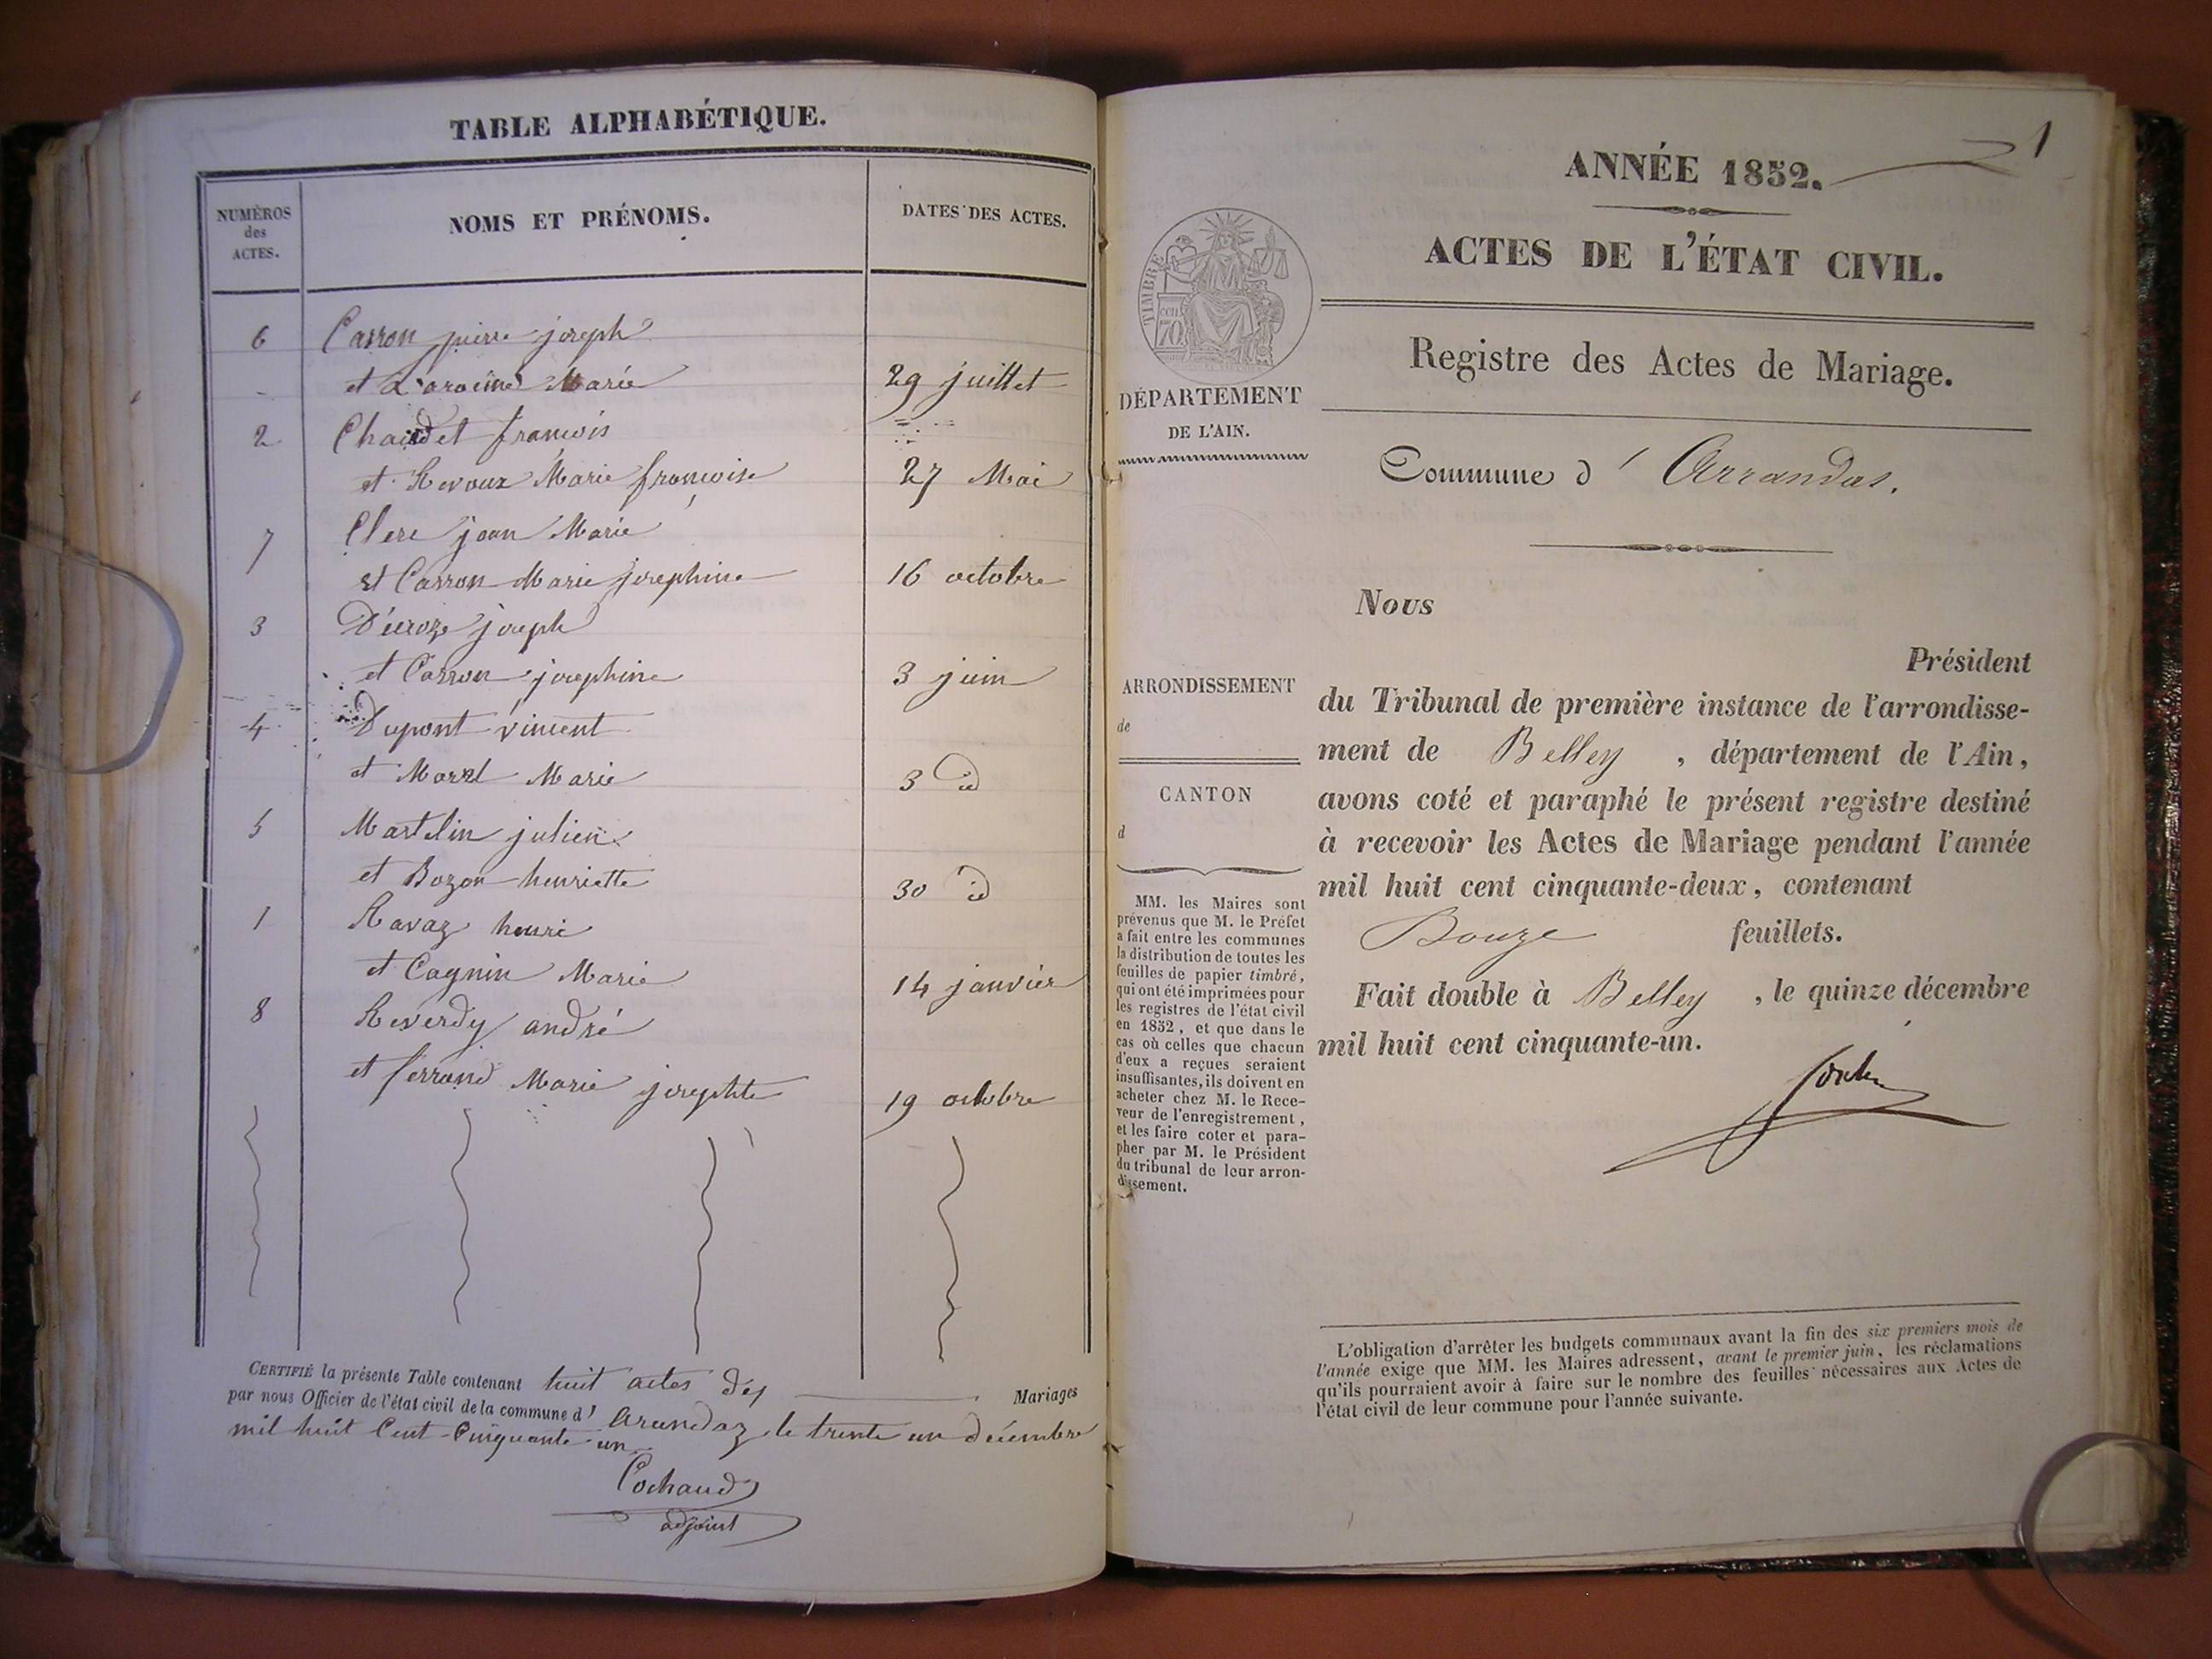 TABLE ALPHABÉTIQUE.
NUMÉROS
des
ACTES.
NOMS ET PRÉNOMS.
DATES DES ACTES.
6 Carron pierre joseph
et Marie 29 juillet
2 Chaudet françois
et Revoux Marie françoise 27 Mai
7 Clerc jean Marie
et Carron Marie josephine 16 octobre
3 Décroze joseph
et Carron josephine 3 juin
4 Dupont vincent
et Morel Marie 3 id
5 Martelin julien
et Bozon henriette 30 id
1 Ravaz henri
et Cagnin Marie 14 janvier
8 Reverdy andré
et ferrand Marie josephte 19 octobre
CERTIFIÉ la présente Table contenant huit actes des Mariages
par nous Officier de l'état civil de la commune d' Arandaz le trente un décembre
mil huit Cent Cinquante un
Cochaud
adjoint
1
ANNÉE 1852.
ACTES DE L'ÉTAT CIVIL.
Registre des Actes de Mariage.
TIMBRE
70
DÉPARTEMENT
DE L'AIN.
Commune d' Arrandas.
ARRONDISSEMENT
de
CANTON
d
MM. les Maires sont
prévenus que M. le Préfet
a fait entre les communes
la distribution de toutes les
feuilles de papier timbré,
qui ont été imprimées pour
les registres de l'état civil
en 1852, et que dans le
cas où celles que chacun
d'eux a reçues seraient
insuffisantes, ils doivent en
acheter chez M. le Rece-
veur de l'enregistrement,
et les faire coter et para-
pher par M. le Président
du tribunal de leur arron-
dissement.
Nous
Président
du Tribunal de première instance de l'arrondisse-
ment de Belley , département de l'Ain,
avons coté et paraphé le présent registre destiné
à recevoir les Actes de Mariage pendant l'année
mil huit cent cinquante-deux, contenant
Douze feuillets.
Fait double à Belley , le quinze décembre
mil huit cent cinquante-un.
L'obligation d'arrêter les budgets communaux avant la fin des six premiers mois de
l'année exige que MM. les Maires adressent, avant le premier juin, les réclamations
qu'ils pourraient avoir à faire sur le nombre des feuilles nécessaires aux Actes de
l'état civil de leur commune pour l'année suivante.